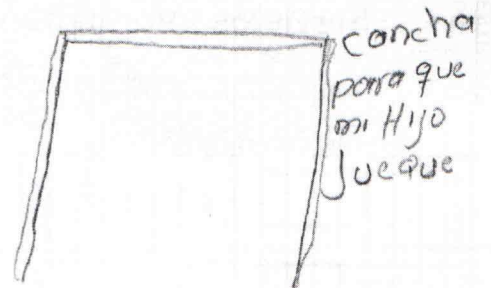 cancha
para que
mi Hijo
Jueque